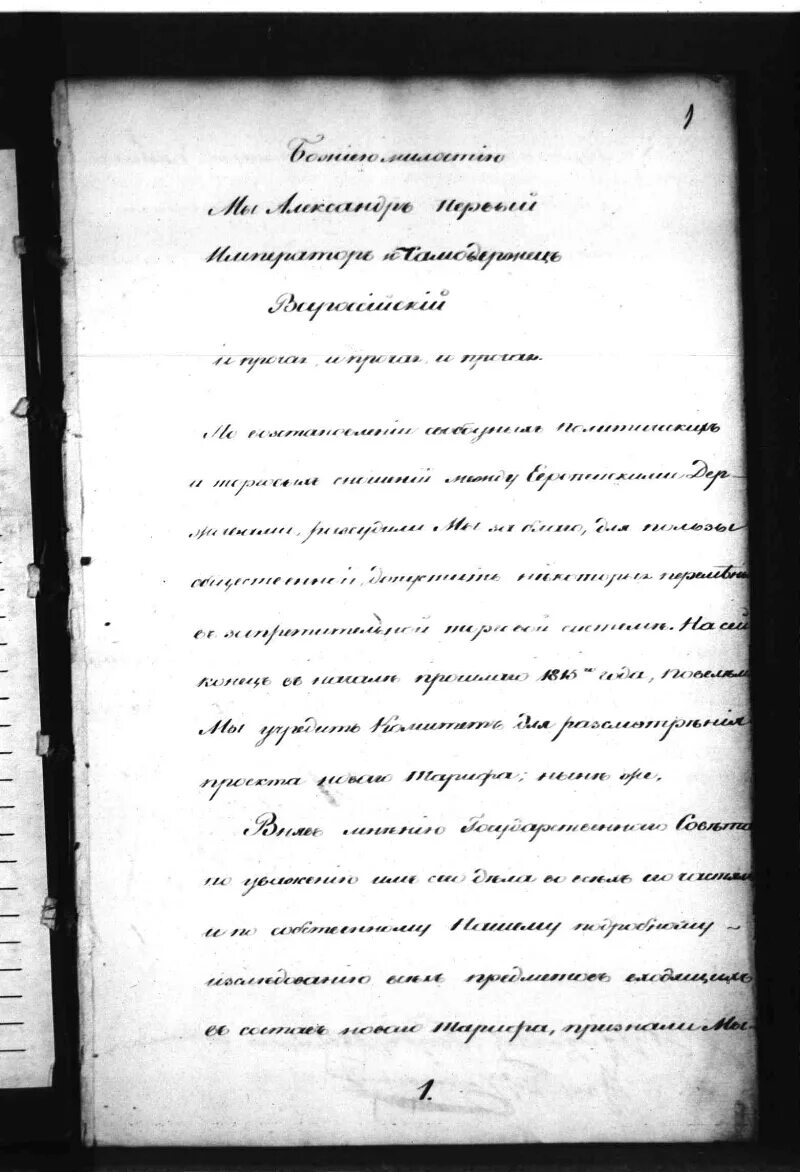 1
Божіею милостію
Мы Александръ первый
Императоръ и Самодержецъ
Всероссійскій
и прочая, и прочая, и прочая.
По возстановленіи свободныхъ политическихъ
и торговыхъ сношеній между Европейскими Дер-
жавами, разсудили Мы за благо, для пользы
общественной, допустить некоторыя перемѣны
въ запретительной торговой системѣ. На сей
конецъ въ началѣ прошлаго 1815го года, повелѣли
Мы учредить Комитетъ для разсмотрѣнія
проекта новаго тарифа; нынѣ же,
Внявъ мнѣнію Государственнаго Совѣта
по уваженію имъ сего дѣла во всѣхъ его частяхъ
и по собственному Нашему подробному
изслѣдованію всѣхъ предметовъ входящихъ
въ составъ новаго тарифа, признали Мы
1.